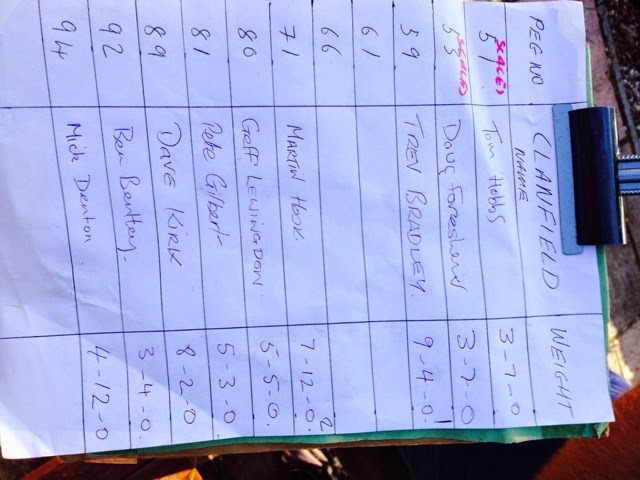 PEG NO CLANFIELD NAME WEIGHT
SCALES
51 Tom Hobbs 3-7-0
SCALES
53 Doug 3-7-0
59 TREV BRADLEY. 9-4-0 1
61
66
71 MARTIN HOOK 7-12-0 2
80 Geoff LEWINGDON. 5-5-0.
81 Pete Gilbert 5-3-0
89 DAVE KIRK 8-2-0
92 Ben Bentley. 3-4-0.
94 Mick Denton. 4-12-0